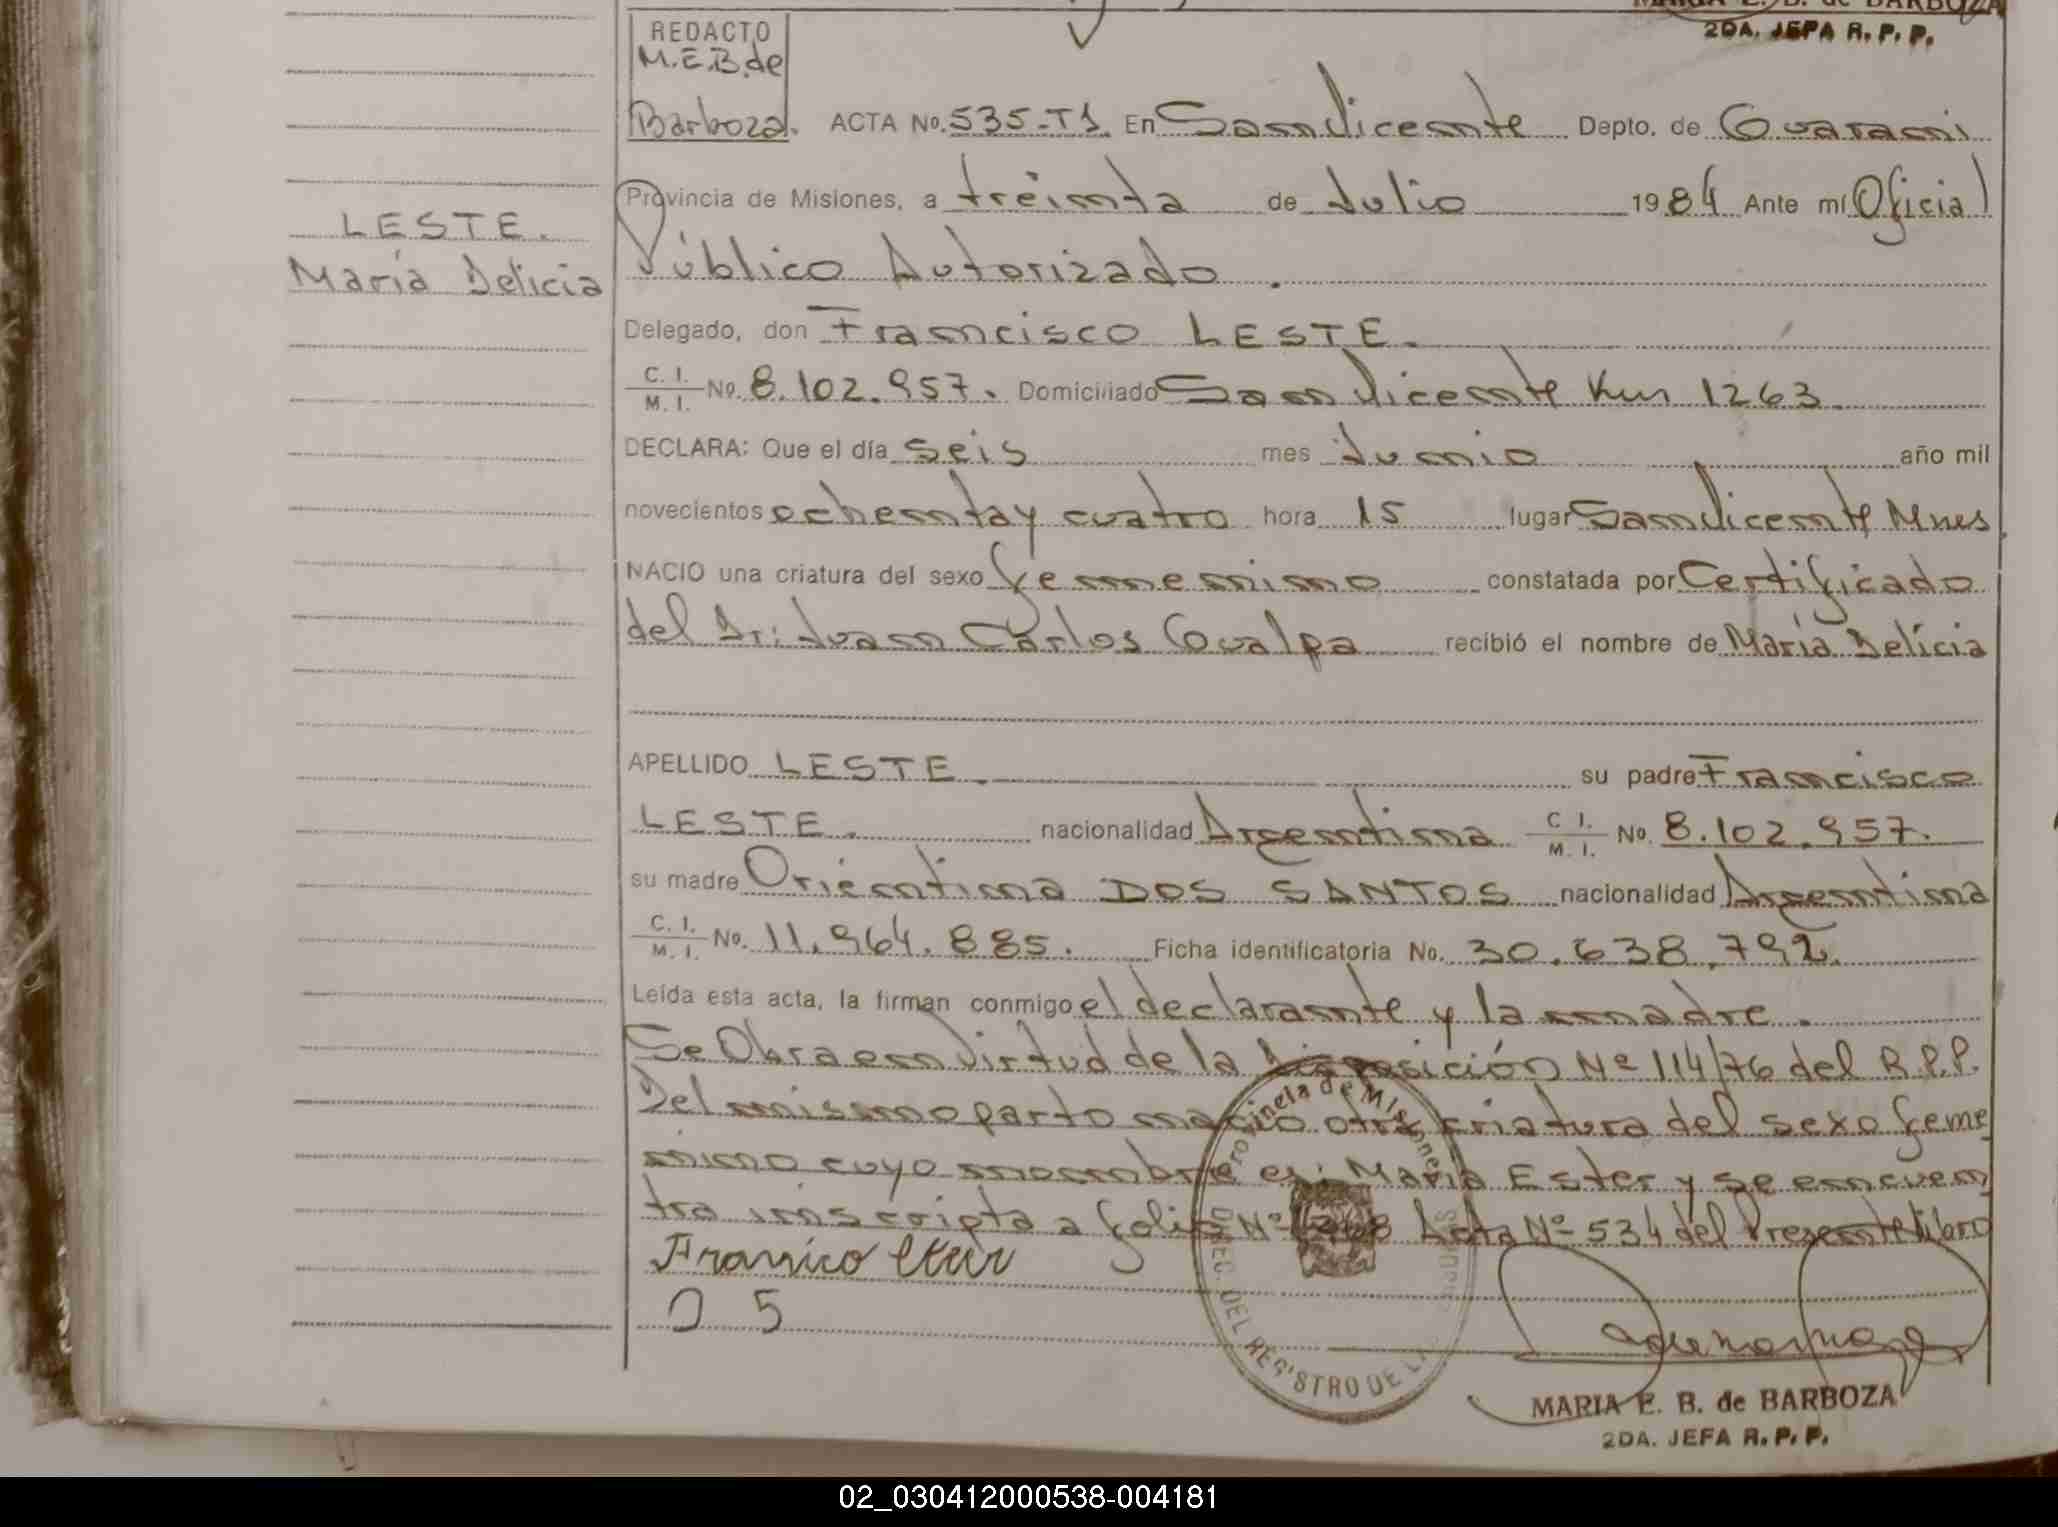 MARIA E. B. de BARBOZA
2DA. JEFA R. P. P.
REDACTO
M.E.B. de
Barboza. ACTA No. 535-T1. En San Vicente Depto. de Guarani
Provincia de Misiones, a treinta de Julio 1984 Ante mí Oficial
Público Autorizado.
LESTE.
María Delicia
Delegado, don Francisco LESTE.
C. I. / M. I. No. 8.102.957. Domiciliado San Vicente Km 1263.
DECLARA: Que el día seis mes Junio año mil
novecientos ochenta y cuatro hora 15 lugar San Vicente Mnes
NACIO una criatura del sexo femenino constatada por Certificado
del Dr: Juan Carlos Gualpa recibió el nombre de María Delícia
APELLIDO LESTE. su padre Francisco
LESTE. nacionalidad Argentina C I. / M. I. No. 8.102.957.
su madre Orientina DOS SANTOS nacionalidad Argentina
C. I. / M. I. No. 11.964.885. Ficha identificatoria No. 30.638.792.
Leída esta acta, la firman conmigo el declarante y la madre.
Se Obra en virtud de la Disposición Nº 114/76 del R.P.P.
Del mismo parto nacio otra criatura del sexo feme
nino cuyo nombre es: María Ester y se encuen
tra inscripta a folio Nº Acta Nº 534 del Presente libro
Provincia de Misiones
DEL REGISTRO DE LA
MARIA E. B. de BARBOZA
2DA. JEFA R. P. P.
02_030412000538-004181